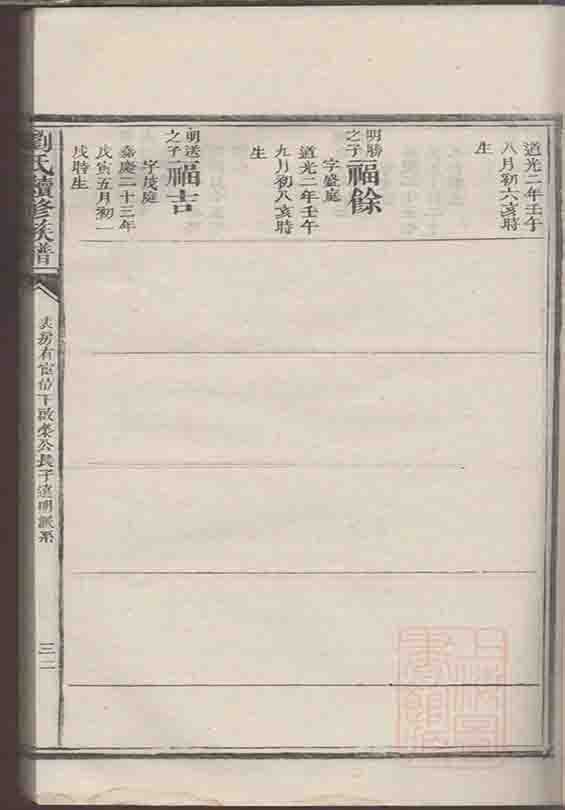 道光二年壬午
八月初六亥時
生
明勝
之子
福餘
字盛庭
道光二年壬午
九月初八亥時
生
明送
之子
福吉
字茂庭
嘉慶二十三年
戊寅五月初一
戌時生
劉氏續修族譜
房有宦位下啟榮公長子達明派系
三二